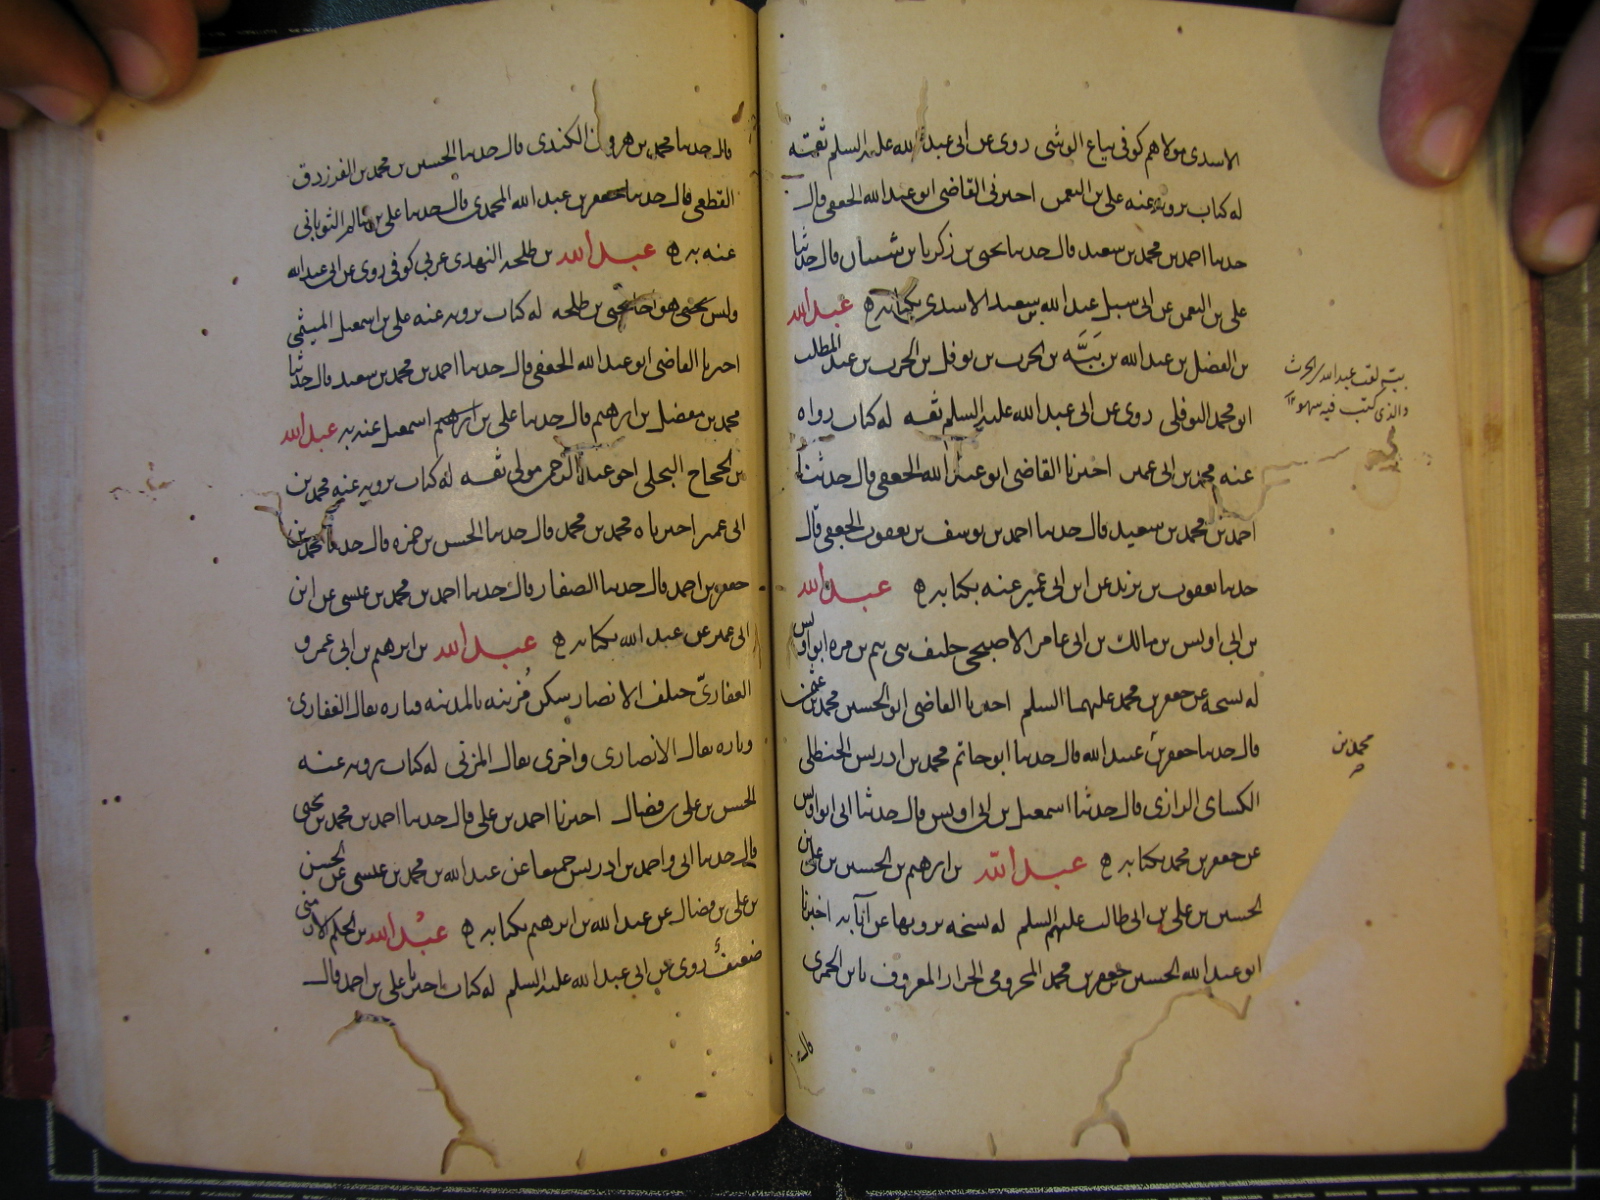 الاسدى مولاهم كوفى بياع الوشى روى عن ابى عبد الله عليه السلم ثقته
له كتاب يرويه عنه على بن النعمن اخبرنى القاضى ابو عبد الله الجعفى قال
حدثنا احمد بن محمد بن سعيد قال حدثنا يحيى بن زكريا بن شيبان قال حدثنا
على بن النعمن عن ابى سبل عبد الله بن سعيد الاسدى بكتابه ه عبد الله
بن الفضل بن عبد الله بن بَبَّه بن الحرث بن نوفل بن الحرث بن عبد المطلب
ابو محمد النوفلى روى عن ابى عبد الله عليه السلم ثقه له كتاب رواه
عنه محمد بن ابى عمير اخبرنا القاضى ابو عبد الله الجعفى قال حدثنا
احمد بن محمد بن سعيد قال حدثنا احمد بن يوسف بن يعقوب الجعفى قال
حدثنا يعقوب بن يزيد عن ابن ابى عمير عنه بكتابه ه عبد الله
بن ابى اويس بن مالك بن ابى عامر الاصبحى حليف بنى تيم بن مره ابو اويس
له نسخه عن جعفر بن محمد عليهما السلم اخبرنا القاضى ابو الحسين محمد بن عثمن
قال حدثنا جعفر بن عبد الله قال حدثنا ابو حاتم محمد بن ادريس الحنظلى
الكساى الرازى قال حدثنا اسمعيل بن ابى اويس قال حدثنا ابى ابو اويس
عن جعفر بن محمد بكتابه ه عبد الله بن ابرهيم بن الحسين بن على بن
الحسين بن على بن ابى طالب عليهم السلم له نسخه يرويها عن آبائه اخبرنا
ابو عبد الله الحسين بن جعفر بن محمد المخزومى الخزاز المعروف بابن الخمرى
قال
ببه لقب عبد الله بن الحرث
والذى كتب فيه سهو ١٢
محمد بن
قال حدثنا محمد بن هرون الكندى قال حدثنا الحسين بن محمد بن الفرزدق
القطعى قال حدثنا جعفر بن عبد الله المحمدى قال حدثنا على بن سالم الثوبانى
عنه به ه عبد الله بن طلحه النهدى عربى كوفى روى عن ابى عبد الله
وليس يحيى هو اخا يحيى بن طلحه له كتاب يرويه عنه على بن اسمعيل الميثمى
اخبرنا القاضى ابو عبد الله الجعفى قال حدثنا احمد بن محمد بن سعيد قال حدثنا
محمد بن مفضل بن ابرهيم قال حدثنا على بن ابرهيم اسمعيل عنه به عبد الله
بن الحجاج البجلى اخو عبد الرحمن مولى ثقه له كتاب يرويه عنه محمد بن
ابى عمير اخبرناه محمد بن محمد قال حدثنا الحسن بن حمزه قال حدثنا محمد بن
جعفر بن احمد قال حدثنا الصفار قال حدثنا احمد بن محمد بن عيسى عن ابن
ابى عمير عن عبد الله بكتابه ه عبد الله بن ابرهيم بن ابى عمرو
الغفارىّ حليف الانصار سكن مُزينه بالمدينه فتاره يقال الغفارى
وتاره يقال الانصارى واخرى يقال المزنى له كتاب يرويه عنه
الحسن بن على بن فضال اخبرنا احمد بن على قال حدثنا احمد بن محمد بن يحيى
قال حدثنا ابى واحمد بن ادريس جميعا عن عبد الله بن محمد بن عيسى عن الحسن
بن على بن فضال عن عبد الله بن ابرهيم بكتابه ه عبد الله بن الحكم الارمنى
ضعيف روى عن ابى عبد الله عليه السلم له كتاب اخبرنا على بن احمد قال